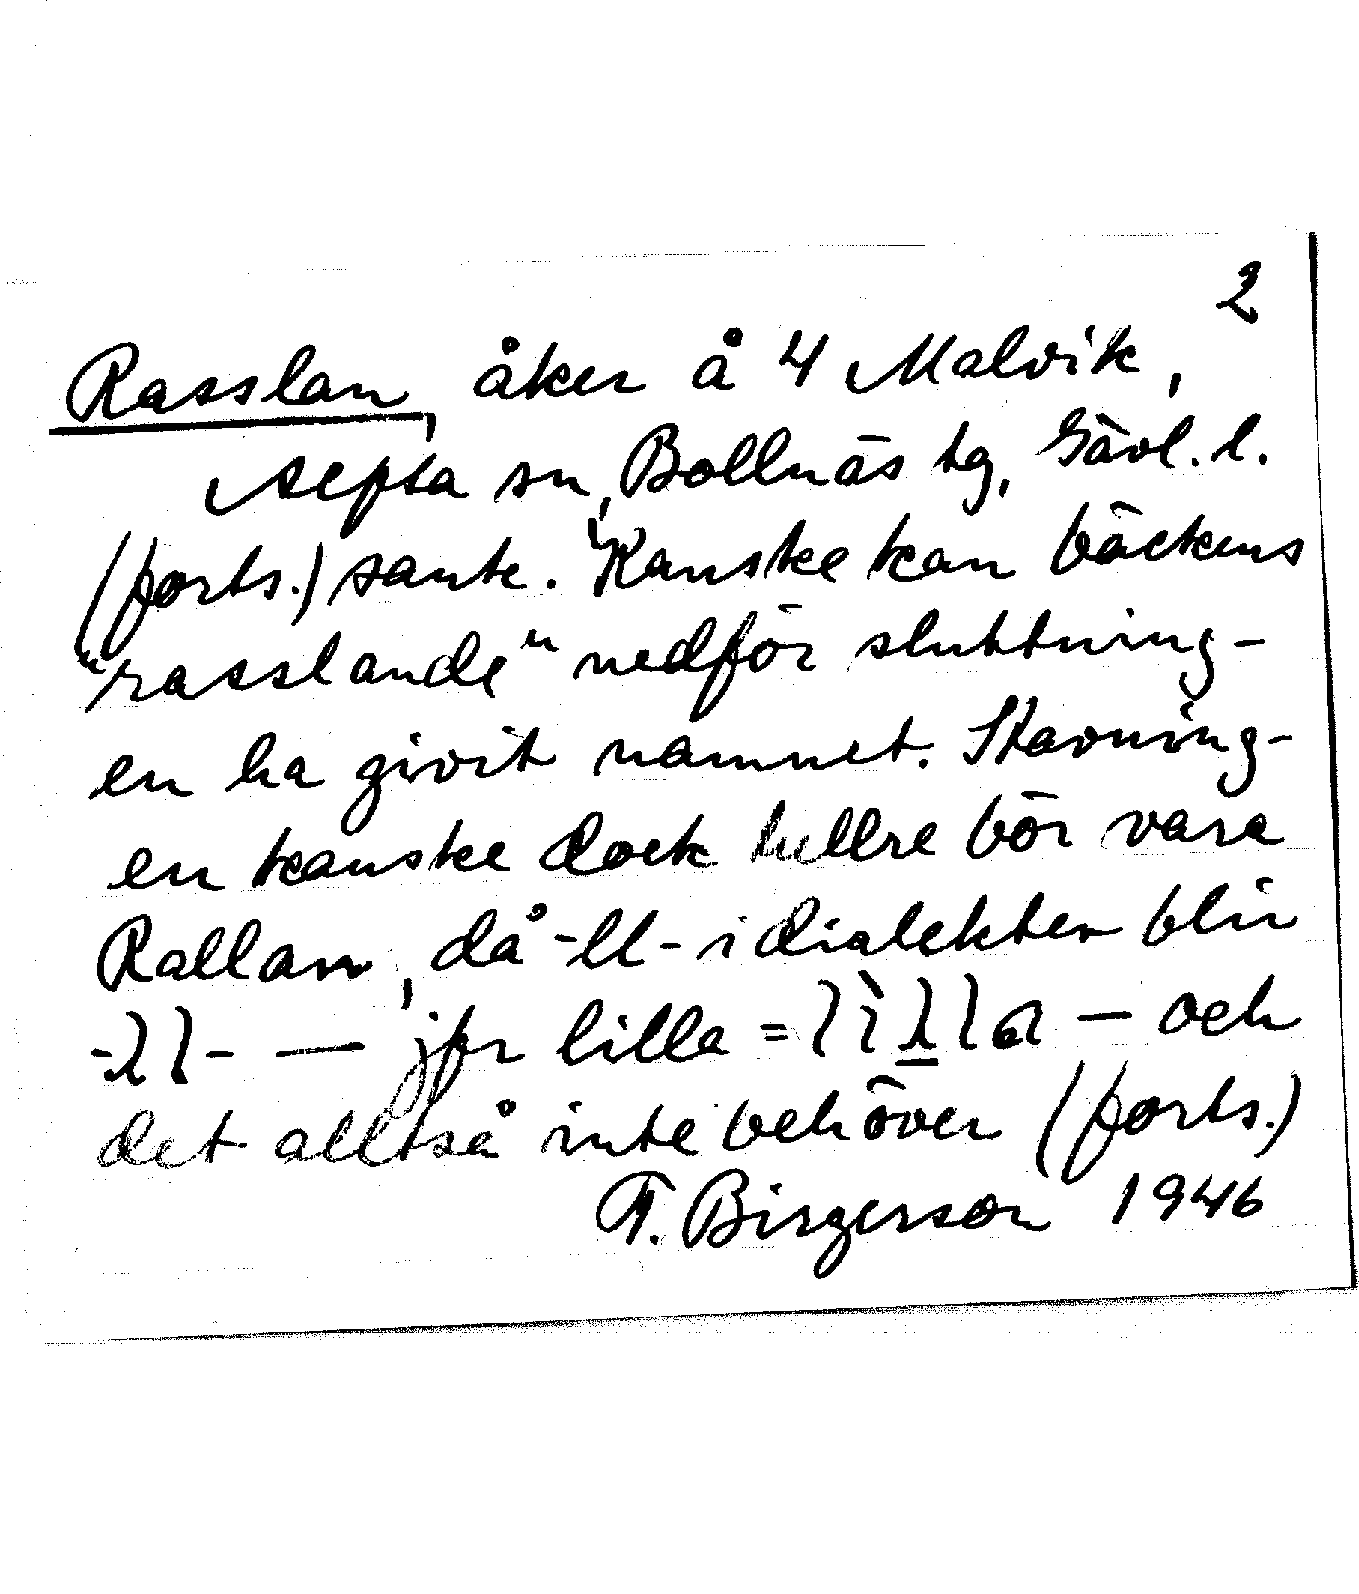 2
Rasslan, åker å 4 Malvik,
Alfta sn, Bollnäs tg, Gävl. l.
(forts.) sank. Kanske kan bäckens
"rasslande" nedför sluttning-
en ha givit namnet. Stavning-
en kanske dock hellre bör vara
Rallan, då -ll- i dialekten blir
- — jfr lilla = — och
det alltså inte behöver (forts.)
F. Birgerson 1946